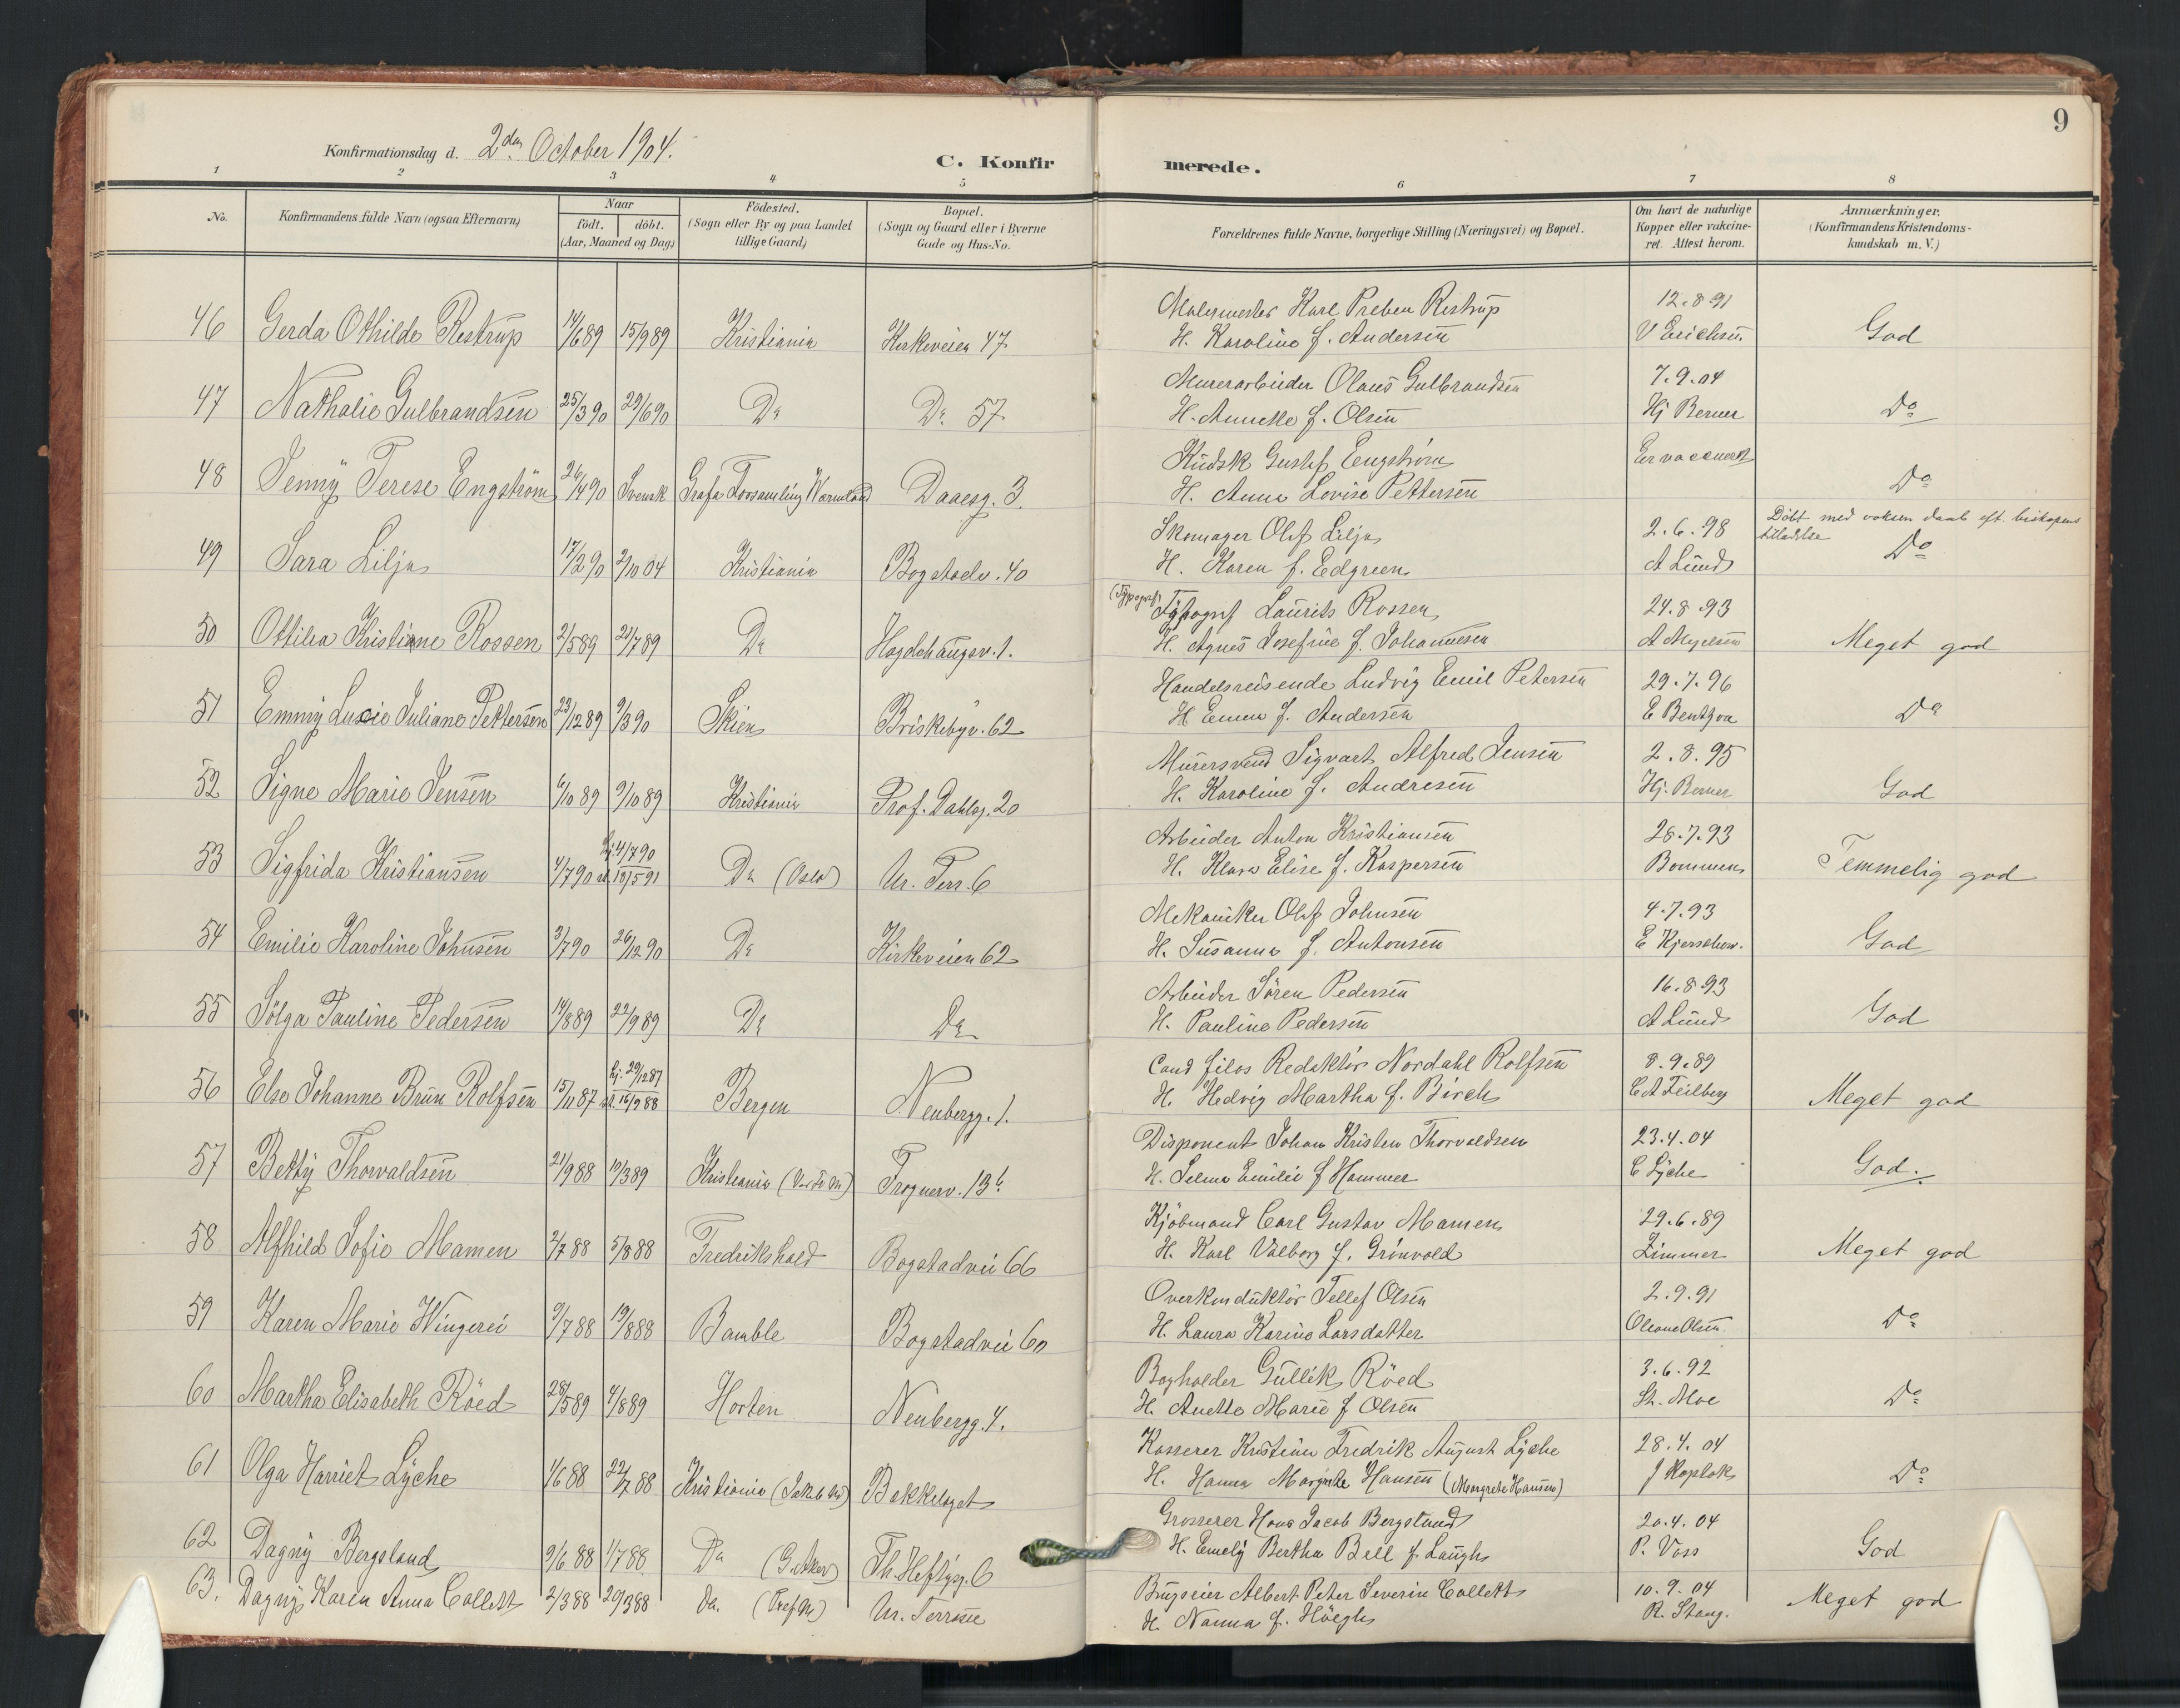 9
Konfirmationsdag d. 2den October 1904.
C. Konfirmerede.
1 2 3 4 5 6 7 8
No.
Konfirmandens fulde Navn (ogsaa Efternavn)
Naar
födt. döbt.
(Aar, Maaned og Dag)
Födested.
(Sogn eller By og paa Landet
tillige Gaard)
Bopæl.
(Sogn og Gaard eller i Byerne
Gade og Hus-No.
Forældrenes fulde Navne, borgerlige Stilling (Næringsvei) og Bopæl.
Om havt de naturlige
Kopper eller vakcine-
ret. Attest herom.
Anmærkninger.
(Konfirmandens Kristendoms-
kundskab m. V.)
46 Gerda Othilde Restrup 14/6 89 15/9 89 Kristiania Kirkeveien 47
Malermester Karl Preben Restrup 12.8.91
H. Karoline f. Andersen V Erichsen God
47 Nathalie Gulbrandsen 25/3 90 29/6 90 Do Do 57
Murerarbeider Olaus Gulbrandsen 7.9.04
H. Annette f. Olsen Hj Berner Do
48 Jenny Terese Engström 26/4 90 Svensk Grafa Forsamling Wermland Daaesg. 3.
Kudsk Gustaf Engström Er vaccineret
H. Anna Lovise Pettersen Do
49 Sara Lilja 17/2 90 2/10 04 Kristiania Bogstadv. 40
Skomager Olof Lilja 2.6.98 Döbt med voksen daab eft. biskopens tilladelse
H. Karen f. Edgreen A Lund Do
50 Ottilia Kristiane Rossen 2/5 89 21/7 89 Do Hagdehaugsv. 1.
(Typograf) Typograf Laurits Rossen 24.8.93
H. Agnes Josefine f. Johannesen Meget god
51 Emmy Lucie Juliane Pettersen 23/12 89 9/3 90 Skien Briskebyv. 62
Handelsreisende Ludvig Emil Petersen 29.7.96
H Emma f. Andersen E Bentzon Do
52 Signe Marie Jensen 6/10 89 9/10 89 Kristiania Prof. Dahlsg. 20
Murersvend Sigvart Alfred Jensen 2.8.95
H. Karoline f. Andresen Hj. Berner God
53 Sigfrida Kristiansen 4/7 90 hj. 4/7 90 st. 18/5 91 Do (Oslo) Ur. Terr. 6
Arbeider Anton Kristiansen 28.7.93
H. Klara Elise f. Kaspersen Bommen Temmelig god
54 Emilie Karoline Johnsen 3/7 90 26/12 90 Do Kirkeveien 62
Mekaniker Olaf Johnsen 4.7.93
H. Susanna f. Antonsen E Kjerschow. God
55 Sölga Pauline Pedersen 14/8 89 22/9 89 Do Do
Arbeider Sören Pedersen 16.8.93
H. Pauline Pedersen A Lund God
56 Else Johanne Brun Rolfsen 15/11 87 hj. 29/12 87 st. 16/9 88 Bergen Neubergg. 1.
Cand filos Redaktör Nordahl Rolfsen 8.9.89
H. Hedvig Martha f. Birch C A Feilberg Meget god
57 Betty Thorvaldsen 21/9 88 19/3 89 Kristiania Frognerv. 13b
Disponent Johan Kristen Thorvaldsen 23.4.04
H. Selma Emilie f Hammer C Lyche God.
58 Alfhild Sofie Mamen 2/7 88 5/8 88 Fredrikshald Bogstadvei 66
Kjöbmand Carl Gustav Mamen 29.6.89
H. Karl Valborg f. Grönvold Zimmer Meget god
59 Karen Marie Wingerei 9/7 88 19/8 88 Bamble Bogstadvei 60
Overkonduktör Tellef Olsen 2.9.91
H. Laura Karine Larsdatter Oleane Olsen Do
60 Martha Elisabeth Röed 28/5 89 4/8 89 Horten Neubergg. 4.
Bogholder Gullik Röed 3.6.92
H. Anette Marie f Olsen St. Moe Do
61 Olga Harriet Lyche 1/6 88 22/7 88 Kristiania (Jakob) Bækkelaget
Kasserer Kristian Fredrik August Lyche 28.4.04
H. Hanna Margrete Hansen (Margrete Hansen) Do
62 Dagny Bergsland 9/6 88 1/7 88 Do (G. Aker) Th. Heftyesg. 6
Grosserer Hans Jacob Bergsland 20.4.04
H. Emely Bertha Bell f Laugh P. Voss God
63. Dagny Karen Anna Collett 2/3 88 29/3 88 Do. Ur. Terrasse
Brugseier Albert Peter Severin Collett 10.9.04
H. Nanna f. Höegh R. Stang. Meget god